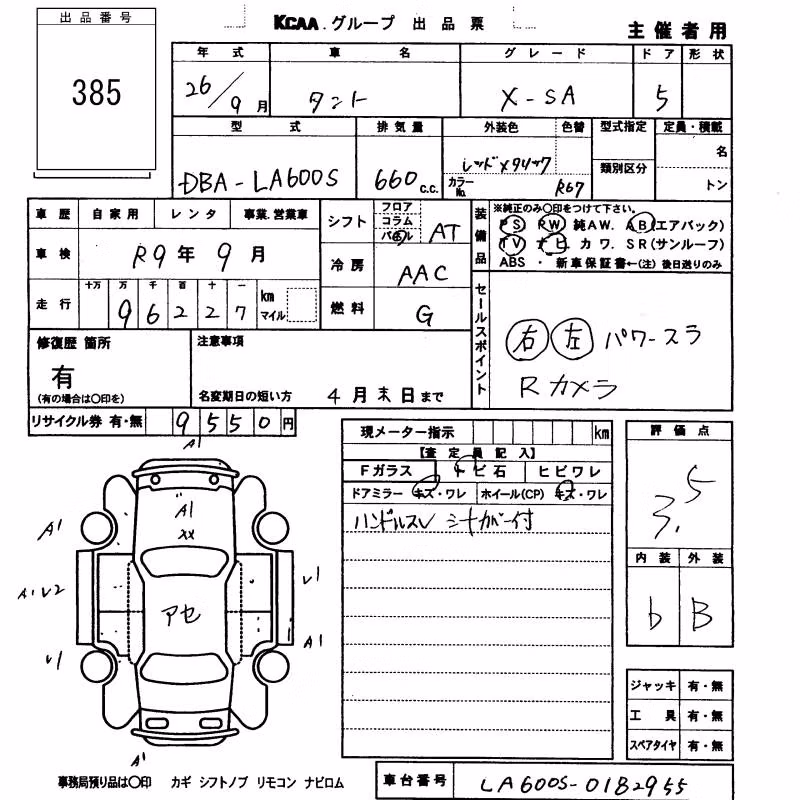 KCAA.グループ 出品票
主催者用
出品番号
385
年式 車名 グレード ドア 形状
26/9月 タント X-SA 5
型式 排気量 外装色 色替 型式指定 定員・積載
DBA-LA600S 660c.c. レッドメタリック 類別区分 名
カラーNo. R67 トン
車歴 自家用 レンタ 事業.営業車
シフト フロア コラム パネル AT
装備品 ※純正のみ○印をつけて下さい。
PS PW 純AW. AB(エアバック)
TV ナビ カワ. SR(サンルーフ)
ABS ・ 新車保証書←(注) 後日送りのみ
車検 R9年9月
冷房 AAC
走行 十万 万 千 百 十 一
96227 km マイル
燃料 G
セールスポイント
右 左 パワースラ
Rカメラ
修復歴 箇所
有
(有の場合は○印を)
注意事項
名変期日の短い方 4月末日まで
リサイクル券 有・無 9550円
現メーター指示 km
【査定員記入】
Fガラス トビ石 ヒビワレ
ドアミラー キズ・ワレ ホイール(CP) キズ・ワレ
ハンドルスレ シートカバー付
評価点
3.5
内装 外装
b B
ジャッキ 有・無
工具 有・無
スペアタイヤ 有・無
A1
A1
XX
A1
A1V2
V1
アセ
V1
A1
A1
事務局預り品は○印 カギ シフトノブ リモコン ナビロム
車台番号 LA600S-0182955